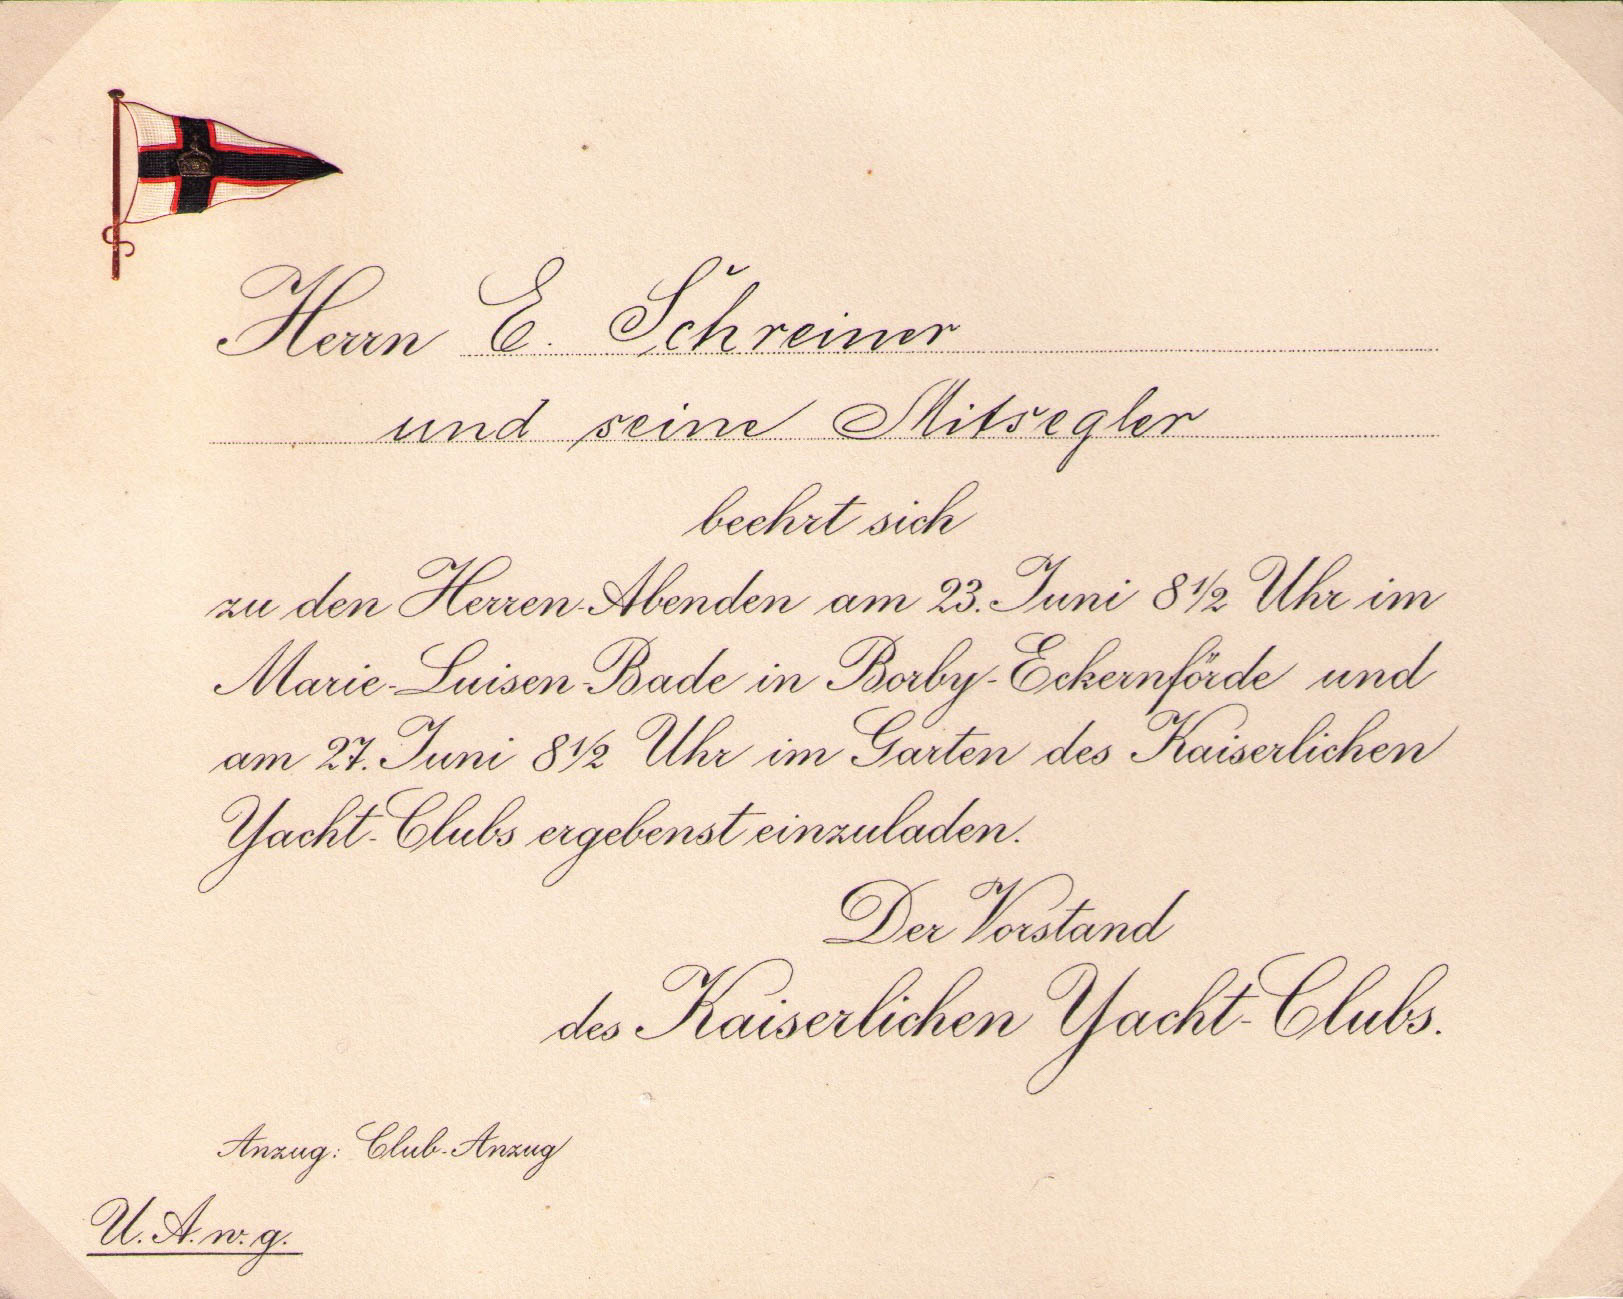 Herrn E. Schreiner
und seine Mitsegler
beehrt sich
zu den Herren-Abenden am 23. Juni 8 1/2 Uhr im
Marie-Luisen-Bade in Borby-Eckernförde und
am 27. Juni 8 1/2 Uhr im Garten des Kaiserlichen
Yacht-Clubs ergebenst einzuladen.
Der Vorstand
des Kaiserlichen Yacht-Clubs.
Anzug: Club-Anzug
U. A. w. g.